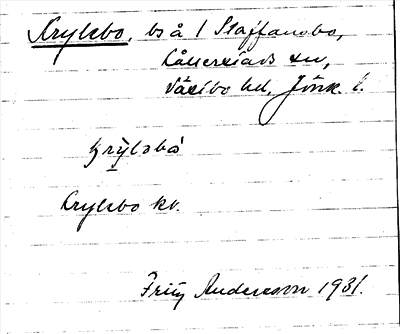 Krylsbo, bs å 1 Staffansbo,
Kållerstads sn,
Västbo hd, Jönk. l.
krỳlsbo
Krylsbo kv.
Fritz Andersson 1931.